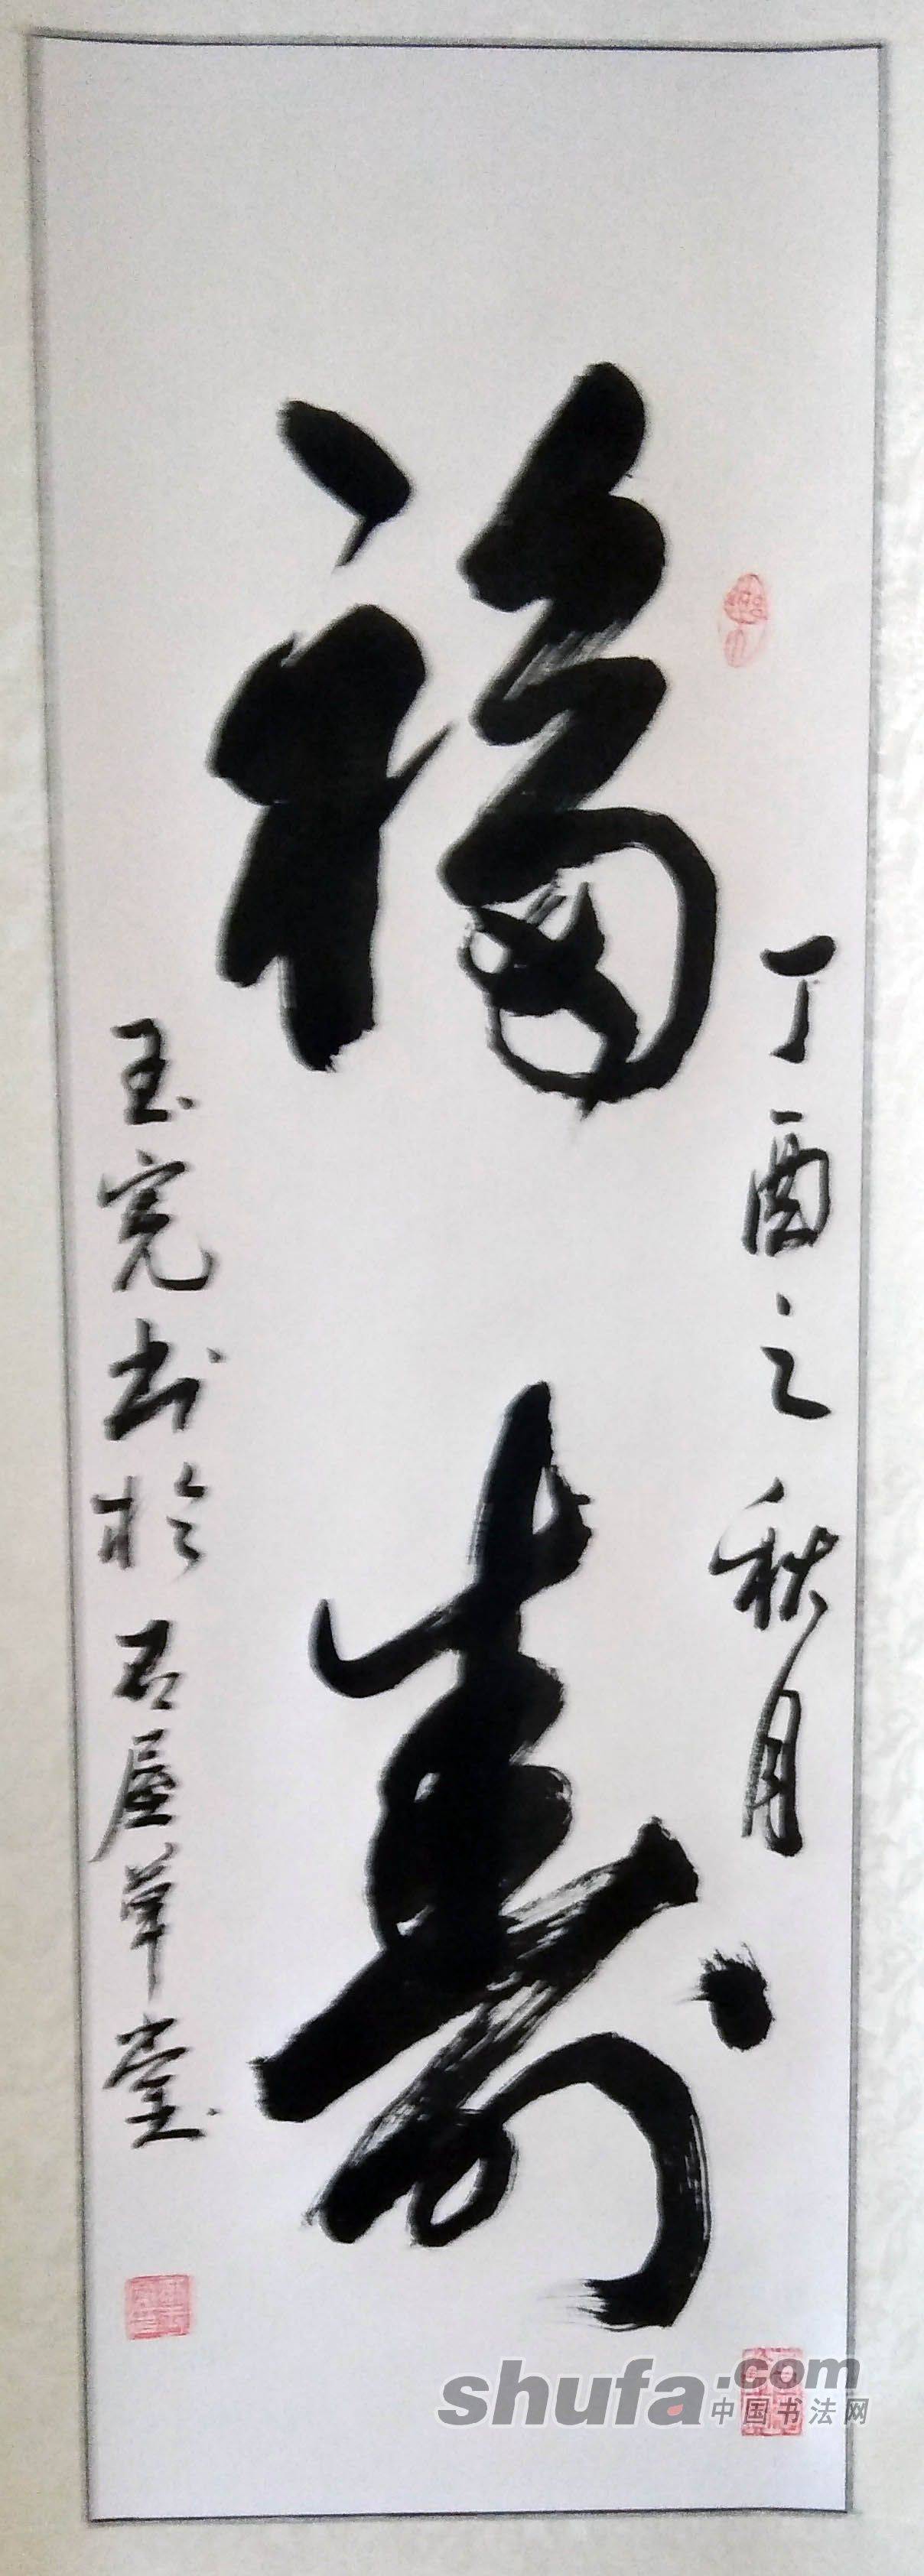 福寿
丁酉之秋月
玉宽书於石屋草堂
shufa.com
中国书法网